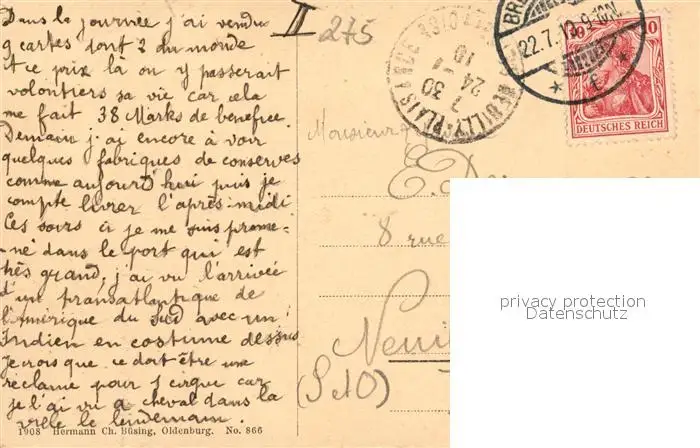 Dans la journée j'ai vendu
9 cartes dont 2 du monde
et ce prix là on y passerait
volontiers sa vie car cela
me fait 38 Marks de benefice
Demain j'ai encore à voir
quelques fabriques de conserves
comme aujourd'hui puis je
compte livrer l'après-midi
Ces soirs ci je me suis prome-
né dans le port qui est
très grand, j'ai vu l'arrivée
d'un transatlantique de
l'amérique du Sud avec un
Indien en costume dessus
Je crois que ce doit être une
réclame pour 1 cirque car
je l'ai vu à cheval dans la
ville le lendemain.
1908 Hermann Ch. Büsing, Oldenburg. No. 866
II
275
NEUILLY-PLAISANCE
7 30
24 - 7
10
SEINE ET OISE
BRE
22.7.10. 9-10N.
* E *
10 10
DEUTSCHES REICH
Monsieur
E.
8 rue
Neui
(S & O)
privacy protection
Datenschutz